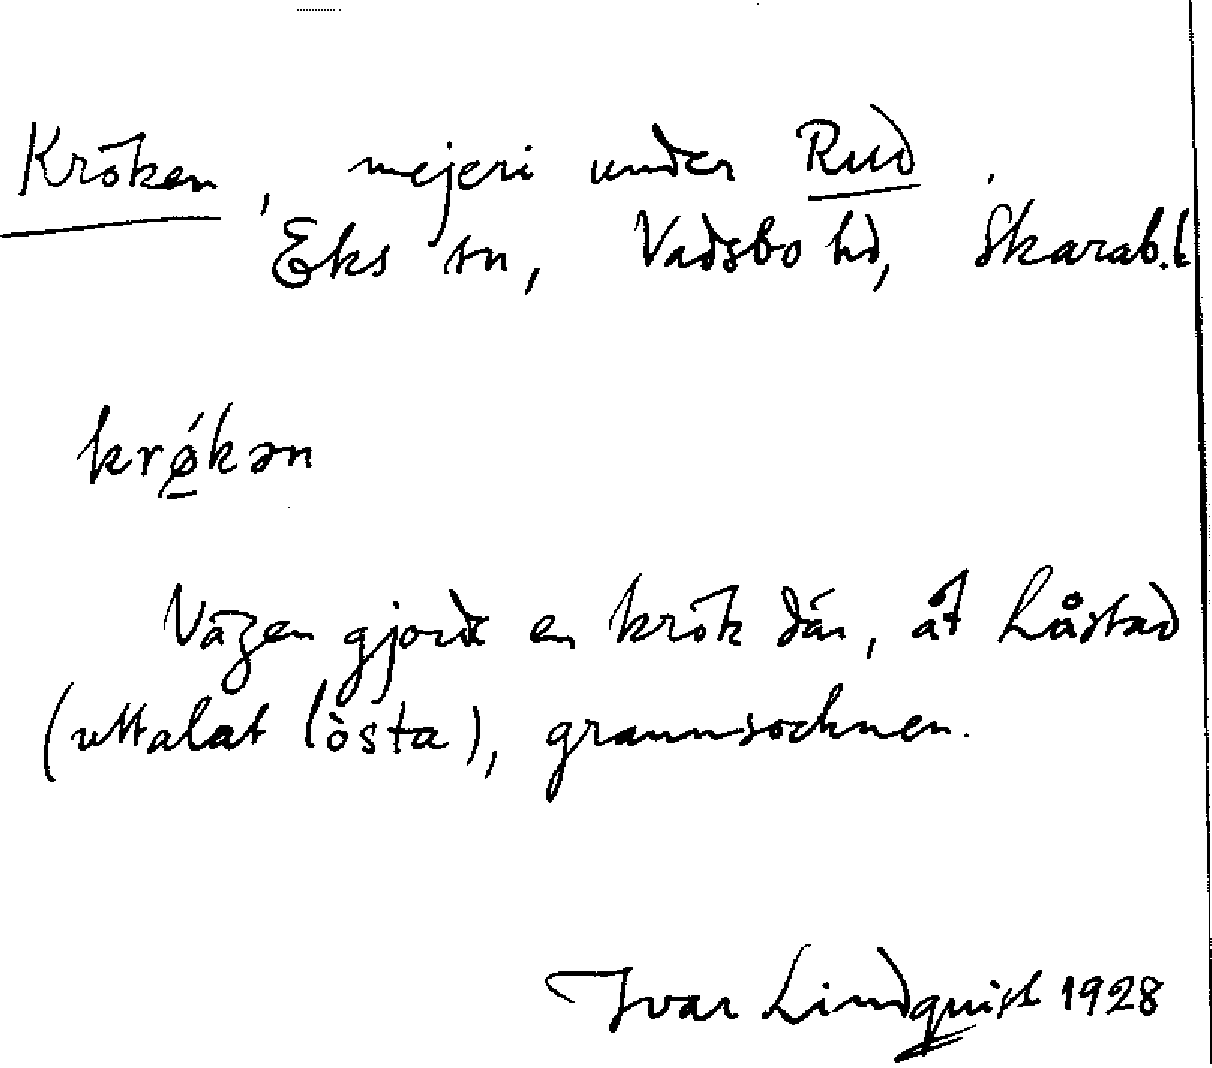 Kröken, mejeri under Rud,
Eks sn, Vadsbo hd, Skarab.l
krǿ̠kən
Vägen gjorde en krök där, åt Låstad
(uttalat lòsta), grannsocknen.
Ivar Lindquist 1928